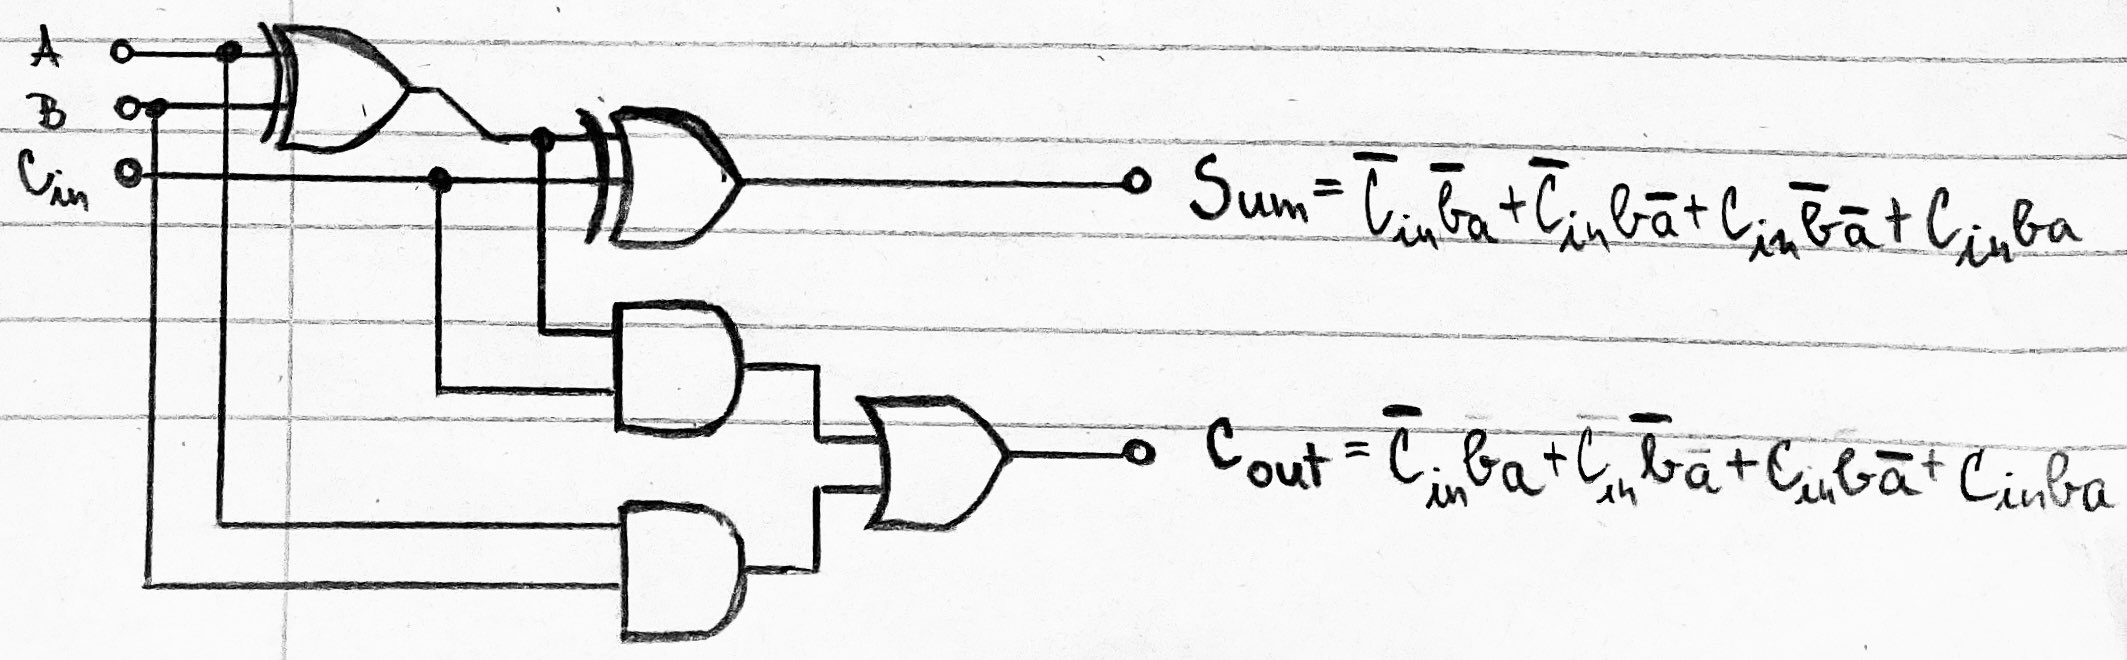 A
B
C_in
Sum = C̅_in b̅a + C̅_in ba̅ + C_in b̅a̅ + C_in ba
C_out = C̅_in ba + C_in b̅a + C_in ba̅ + C_in ba